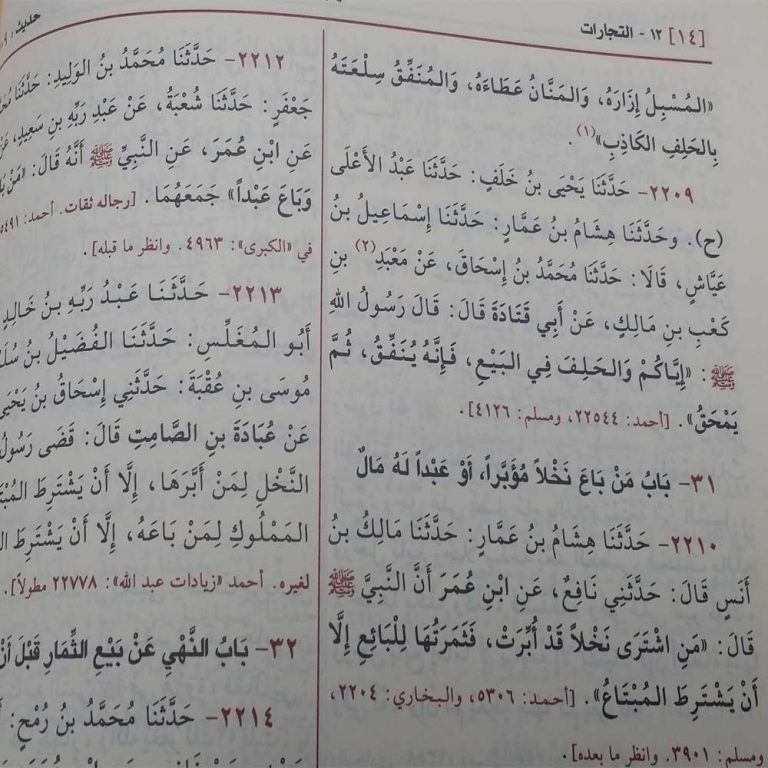 [١٤] ١٢ - التجارات
«المُسْبِلُ إِزَارَهُ، وَالمَنَّانُ عَطَاءَهُ، وَالمُنَفِّقُ سِلْعَتَهُ
بِالحَلِفِ الكَاذِبِ»(١).
٢٢٠٩- حَدَّثَنَا يَحْيَى بنُ خَلَفٍ: حَدَّثَنَا عَبْدُ الأَعْلَى
(ح). وحَدَّثَنَا هِشَامُ بنُ عَمَّارٍ: حَدَّثَنَا إِسْمَاعِيلُ بنُ
عَيَّاشٍ، قَالَا: حَدَّثَنَا مُحَمَّدُ بنُ إِسْحَاقَ، عَنْ مَعْبَدِ(٢) بنِ
كَعْبِ بنِ مَالِكٍ، عَنْ أَبِي قَتَادَةَ قَالَ: قَالَ رَسُولُ اللهِ
ﷺ: «إِيَّاكُمْ وَالحَلِفَ فِي البَيْعِ، فَإِنَّهُ يُنَفِّقُ، ثُمَّ
يَمْحَقُ». [أحمد: ٢٢٥٤٤، ومسلم: ٤١٢٦].
٣١- بَابُ مَنْ بَاعَ نَخْلاً مُؤَبَّراً، أَوْ عَبْداً لَهُ مَالٌ
٢٢١٠- حَدَّثَنَا هِشَامُ بنُ عَمَّارٍ: حَدَّثَنَا مَالِكُ بنُ
أَنَسٍ قَالَ: حَدَّثَنِي نَافِعٌ، عَنِ ابْنِ عُمَرَ أَنَّ النَّبِيَّ ﷺ
قَالَ: «مَنِ اشْتَرَى نَخْلاً قَدْ أُبِّرَتْ، فَثَمَرَتُهَا لِلْبَائِعِ إِلَّا
أَنْ يَشْتَرِطَ المُبْتَاعُ». [أحمد: ٥٣٠٦، والبخاري: ٢٢٠٤،
ومسلم: ٣٩٠١. وانظر ما بعده].
حديث:
٢٢١٢- حَدَّثَنَا مُحَمَّدُ بنُ الوَلِيدِ: حَدَّثَنَا
جَعْفَرٍ: حَدَّثَنَا شُعْبَةُ، عَنْ عَبْدِ رَبِّهِ بنِ سَعِيدٍ،
عَنِ ابْنِ عُمَرَ، عَنِ النَّبِيِّ ﷺ أَنَّهُ قَالَ: «مَنْ
وَبَاعَ عَبْداً» جَمَعَهُمَا. [رجاله ثقات. أحمد:
في «الكبرى»: ٤٩٦٣. وانظر ما قبله].
٢٢١٣- حَدَّثَنَا عَبْدُ رَبِّهِ بنُ خَالِدٍ
أَبُو المُغَلِّسِ: حَدَّثَنَا الفُضَيْلُ بنُ
مُوسَى بنِ عُقْبَةَ: حَدَّثَنِي إِسْحَاقُ بنُ يَحْيَى
عَنْ عُبَادَةَ بنِ الصَّامِتِ قَالَ: قَضَى رَسُولُ
النَّخْلِ لِمَنْ أَبَّرَهَا، إِلَّا أَنْ يَشْتَرِطَ
المَمْلُوكِ لِمَنْ بَاعَهُ، إِلَّا أَنْ يَشْتَرِطَ
لغيره. أحمد «زيادات عبد الله»: ٢٢٧٧٨ مطولاً].
٣٢- بَابُ النَّهْيِ عَنْ بَيْعِ الثِّمَارِ قَبْلَ أَنْ
٢٢١٤- حَدَّثَنَا مُحَمَّدُ بنُ رُمْحٍ: